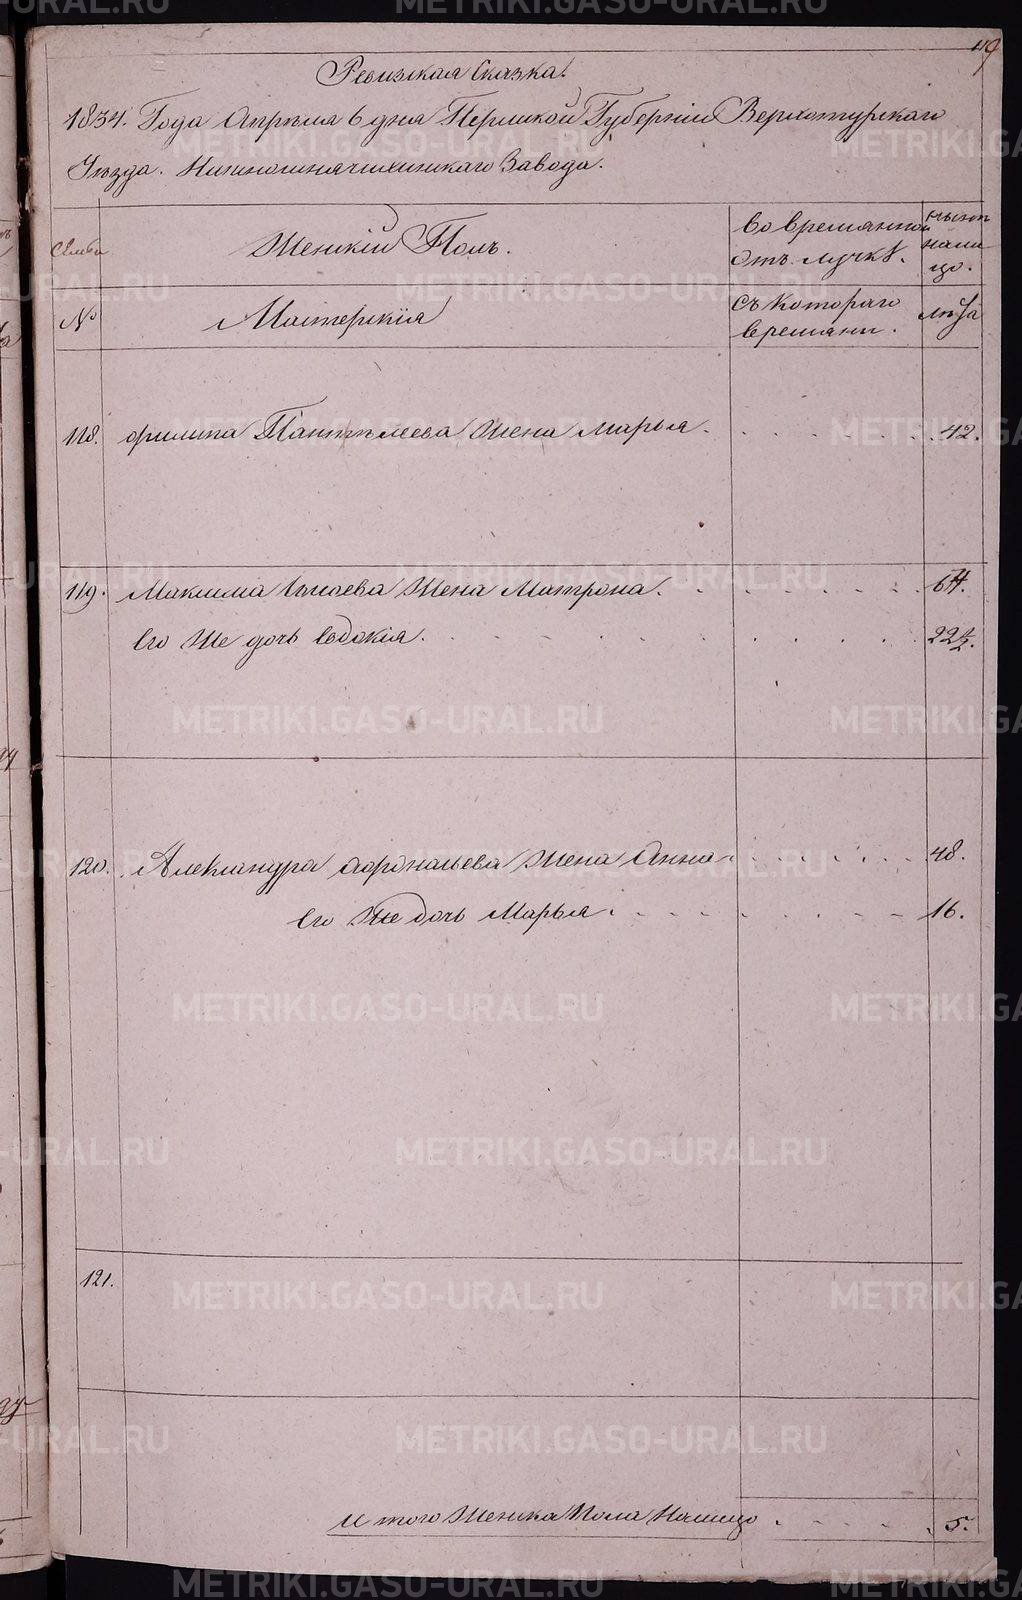 119
Ревизская Сказка.
1834. Года Апреля 6 дня Пермской Губернии Верхотурскаго
Уезда. Нижносинячихинскаго Завода.
Семьи
Женский Полъ.
во времянной
отъ лучке.
ныне
нали
цо.
№
Мастерския
съ котораго
времяни.
лета
118. филипа Пантелеева Жена Марья. 42.
119. Максима Жена Матрона. 64.
Его Же дочь Евдокия. 22 1/2.
120. Александра Афонасьева Жена Анна 48.
Его Же дочь Марья. 16.
121.
Итого Женска Пола Налицо 5.
METRIKI.GASO-URAL.RU